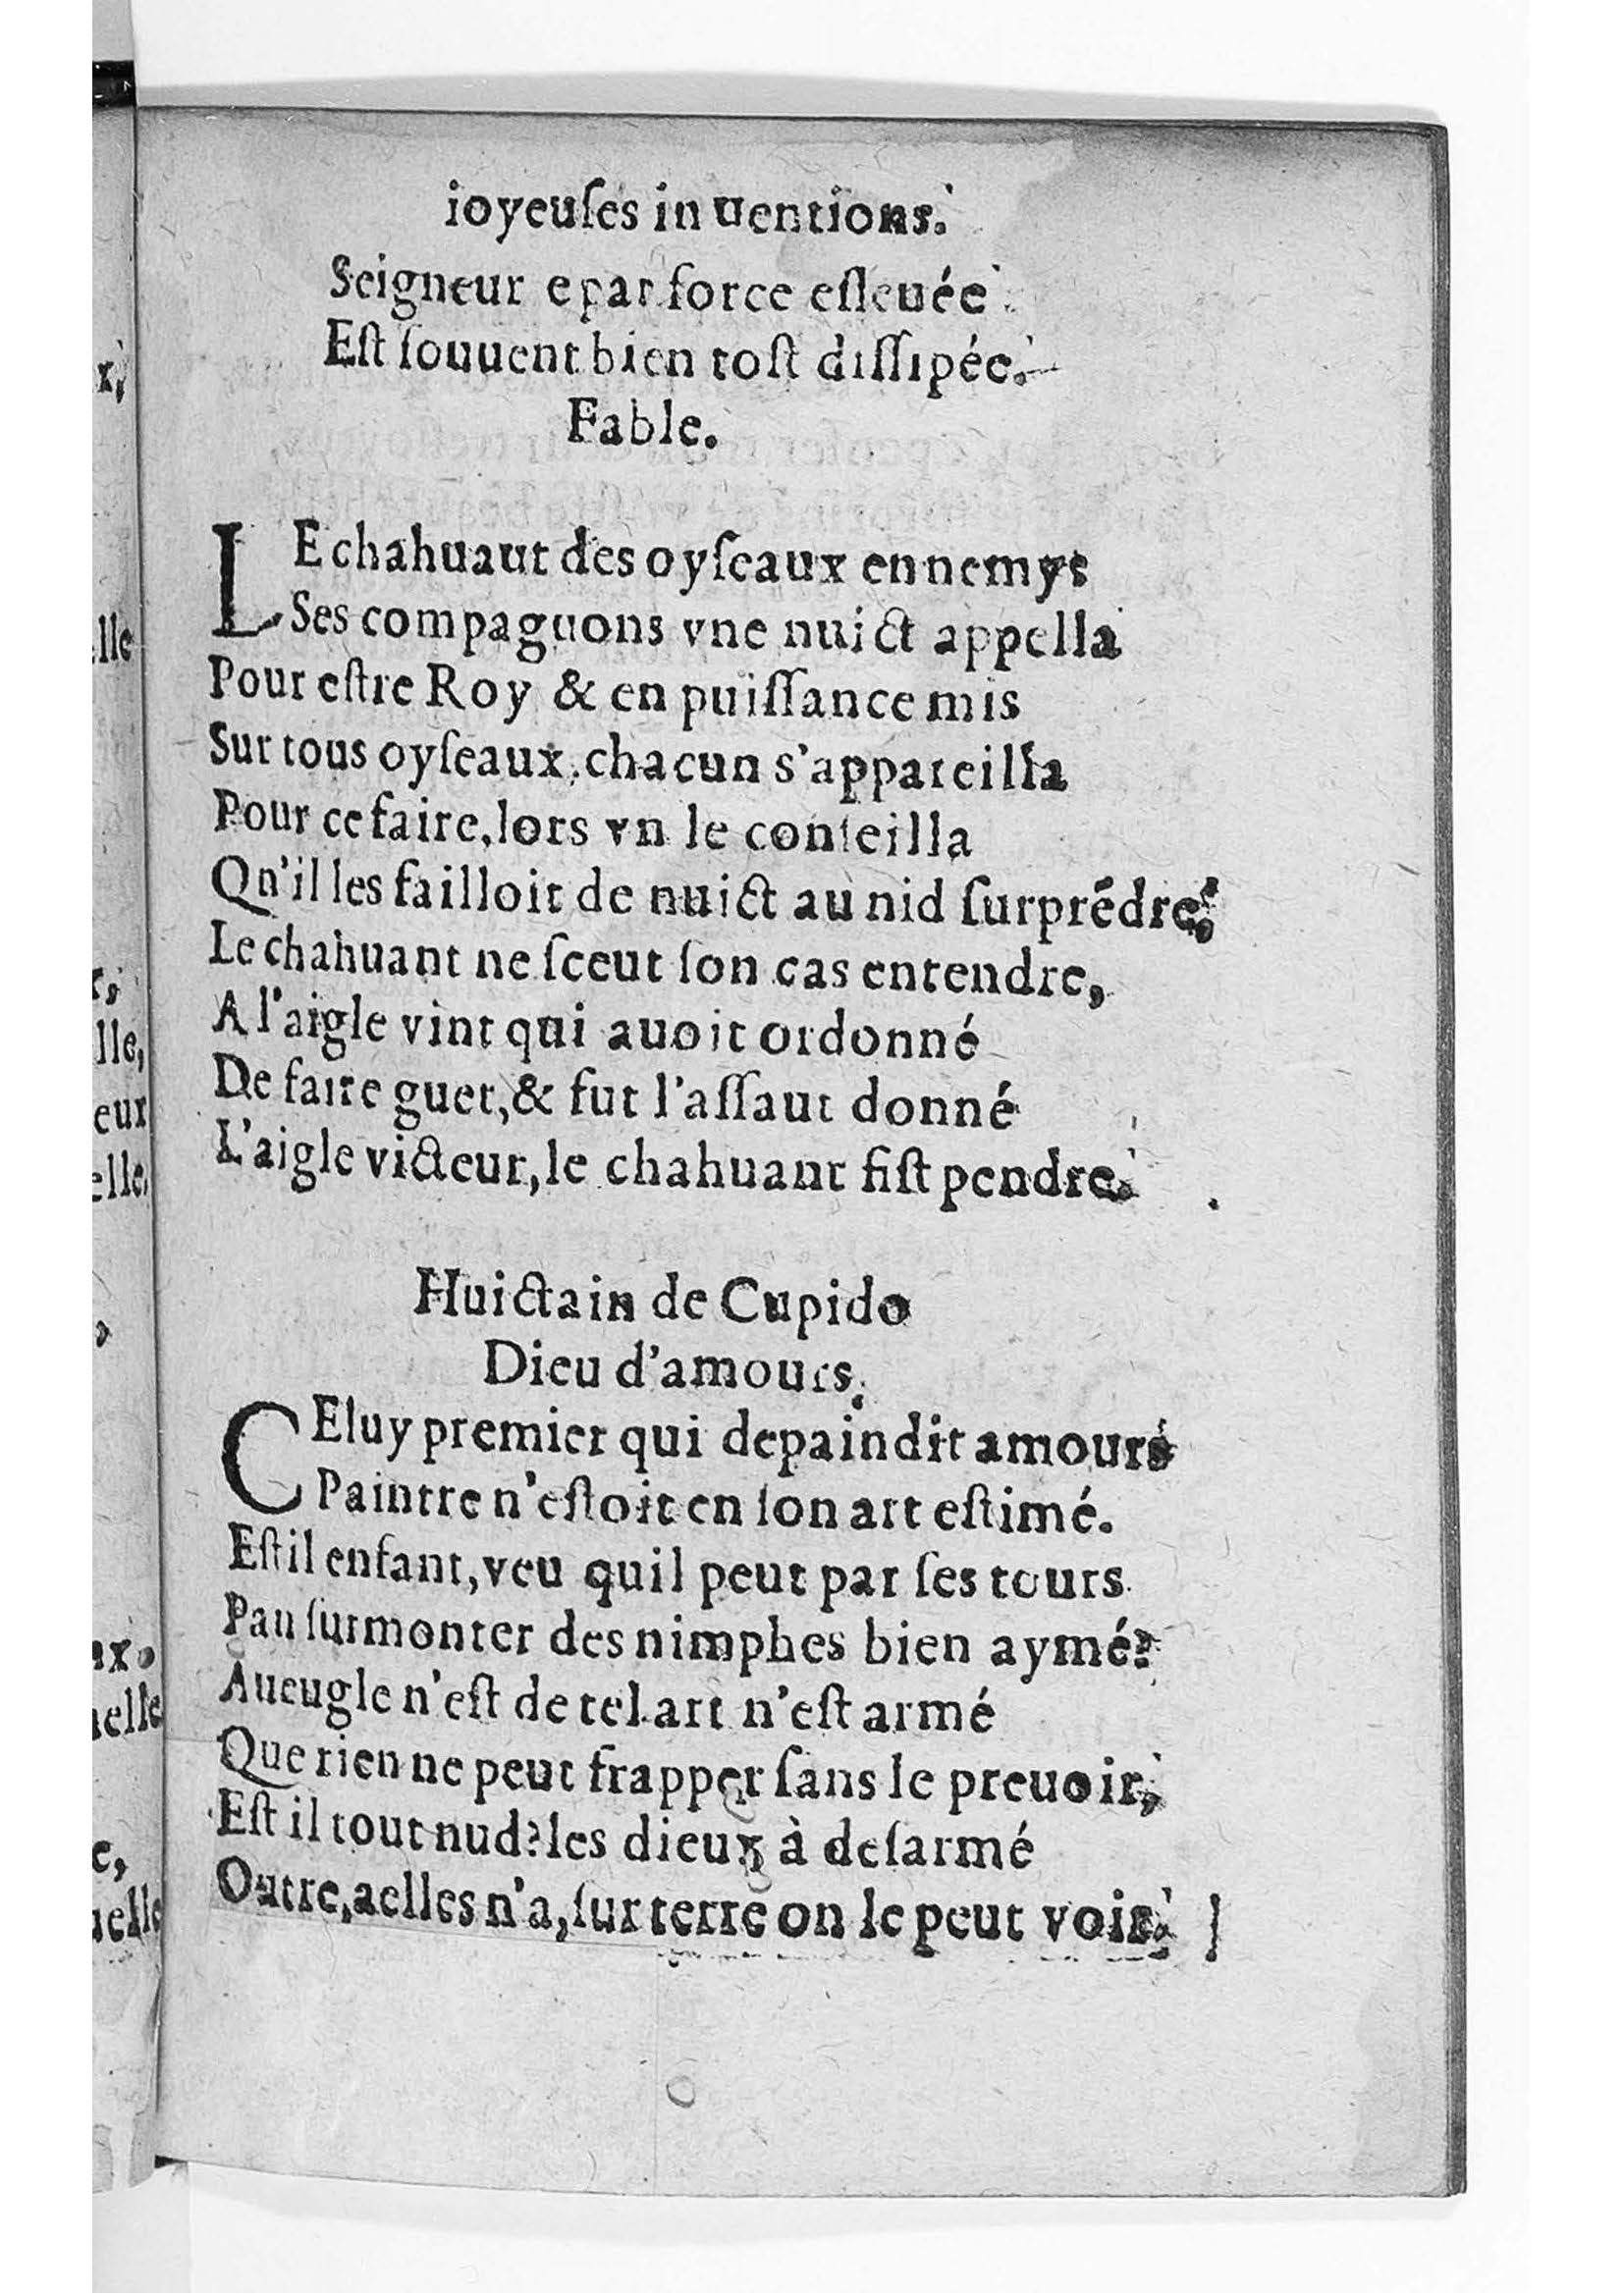 ioyeuſes in uentions.
Seigneur e par force eſleuée
Eſt ſouuent bien toſt diſſipée.
Fable.
LE chahuaut des oyſeaux ennemys
Ses compaguons vne nuict appella
Pour eſtre Roy & en puiſſance mis
Sur tous oyſeaux, chacun s'appareilla
Pour ce faire, lors vn le conſeilla
Qn'il les failloit de nuict au nid ſurprēdre,
Le chahuant ne ſceut ſon cas entendre,
A l'aigle vint qui auoit ordonné
De faire guet, & fut l'aſſaut donné
L'aigle victeur, le chahuant fiſt pendre.
Huictain de Cupido
Dieu d'amours.
CEluy premier qui depaindit amours
Paintre n'eſtoit en ſon art eſtimé.
Eſt il enfant, veu quil peut par ſes tours
Pan ſurmonter des nimphes bien aymé?
Aueugle n'eſt de tel art n'eſt armé
Que rien ne peut frapper ſans le preuoir,
Eſt il tout nud? les dieux à deſarmé
Outre, aelles n'a, ſur terre on le peut voir.